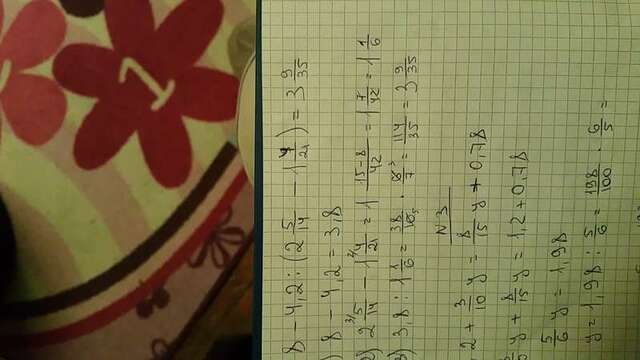 1
8 - 4,2 : (2 5/14 - 1 4/21) = 3 9/35
) 8 - 4,2 = 3,8
2) 2 3/5/14 - 1 2/4/21 = 1 15-8/42 = 1 7/42 = 1 1/6
3) 3,8 : 1 1/6 = 38/10 5 · 6 3/7 = 114/35 = 3 9/35
N 3
,2 + 3/10 y = 8/15 y + 0,78
y + 8/15 y = 1,2 + 0,78
5/6 y = 1,98
y = 1,98 : 5/6 = 198/100 · 6/5 =